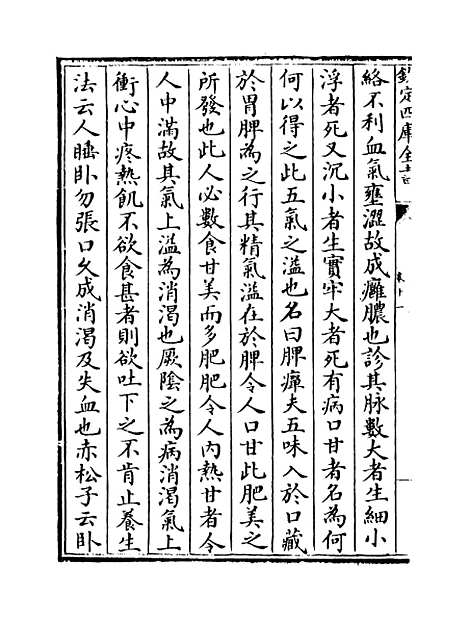 欽定四庫全書
卷十一
絡不利血氣壅澀故成癰膿也診其脉數大者生細小
浮者死又沉小者生實牢大者死有病口甘者名為何
何以得之此五氣之溢也名曰脾癉夫五味入於口藏
於胃脾為之行其精氣溢在於脾令人口甘此肥美之
所發也此人必數食甘美而多肥肥令人內熱甘者令
人中滿故其氣上溢為消渴也厥陰之為病消渴氣上
衝心中疼熱飢不欲食甚者則欲吐下之不肯止養生
法云人睡卧勿張口久成消渴及失血也赤松子云卧